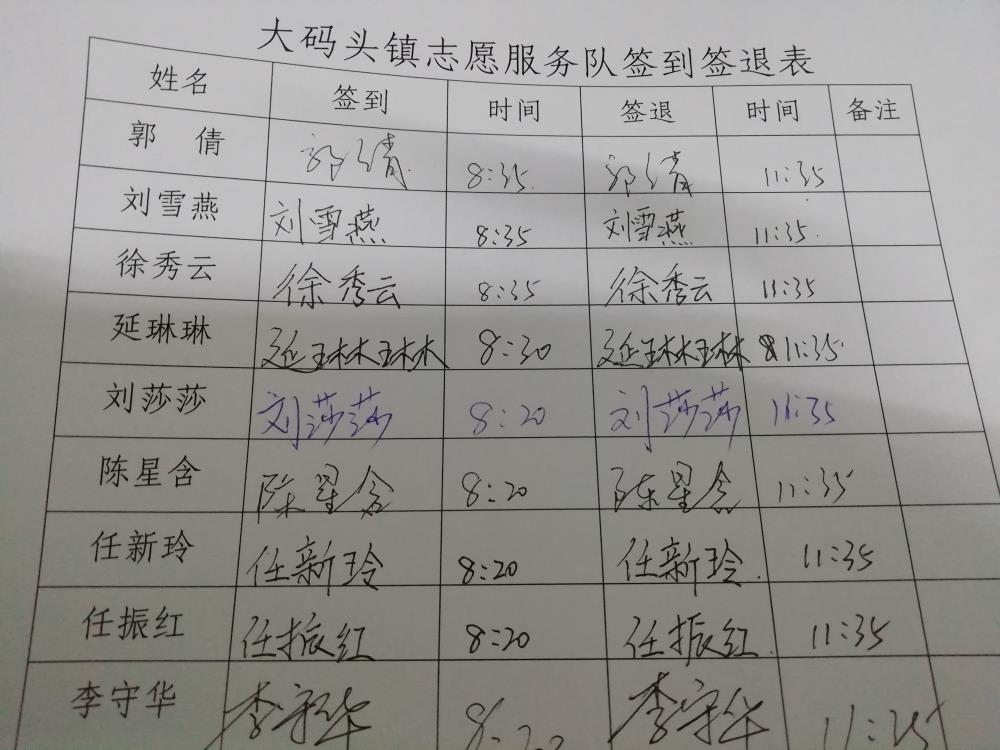 大码头镇志愿服务队签到签退表
姓名 签到 时间 签退 时间 备注
郭 倩 郭倩 8:35 郭倩 11:35
刘雪燕 刘雪燕 8:35 刘雪燕 11:35
徐秀云 徐秀云 8:35 徐秀云 11:35
延琳琳 延琳琳 8:30 延琳琳 11:35
刘莎莎 刘莎莎 8:20 刘莎莎 11:35
陈星含 陈星含 8:20 陈星含 11:35
任新玲 任新玲 8:20 任新玲 11:35
任振红 任振红 8:20 任振红 11:35
李守华 李守华 8:20 李守华 11:35